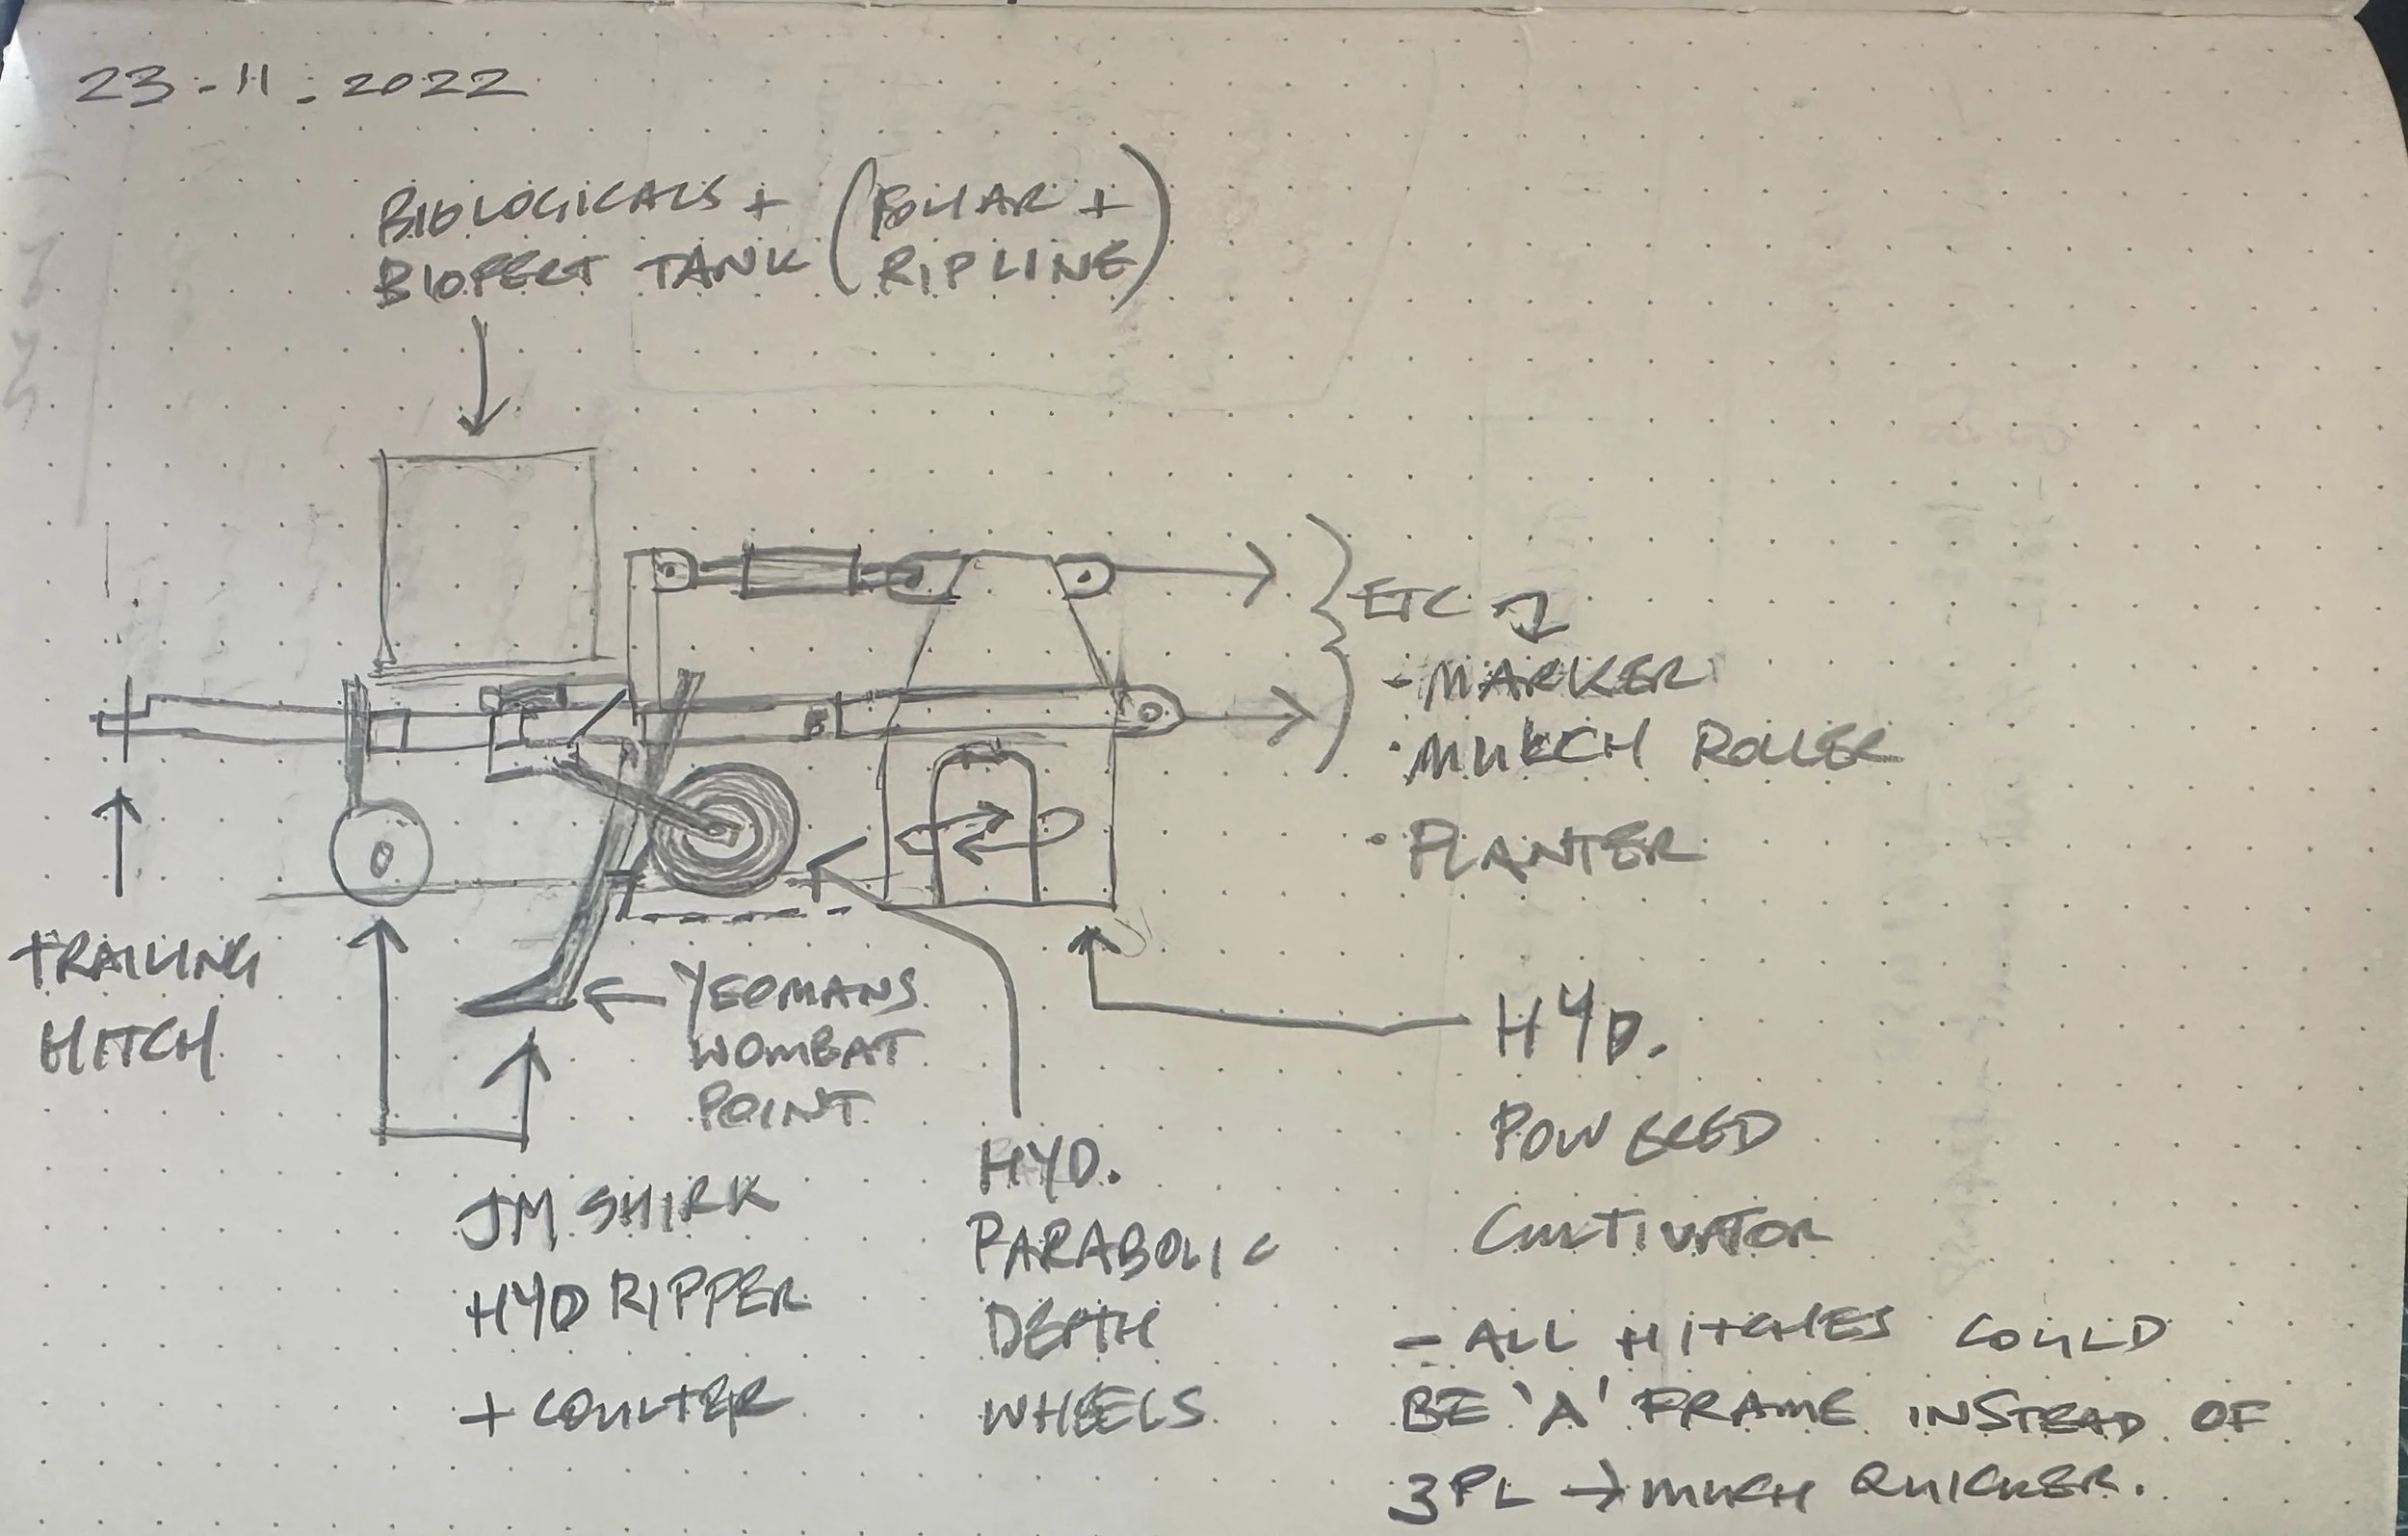 23-11-2022
BIOLOGICALS + (FOLIAR +
BIOFERT TANK RIPLINE)
ETC
- MARKER
· MULCH ROLLER
· PLANTER
TRAILING
HITCH
YEOMANS
WOMBAT
POINT
JM SHIRK
HYD RIPPER
+ COULTER
HYD.
PARABOLIC
DEPTH
WHEELS
HYD.
POWERED
CULTIVATOR
- ALL HITCHES COULD
BE 'A' FRAME INSTEAD OF
3PL → MUCH QUICKER.